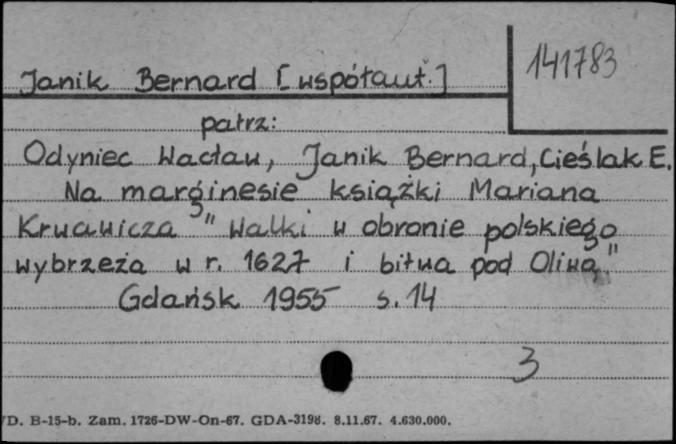 Janik Bernard [współaut.]
141783
patrz:
Odyniec Wacław, Janik Bernard, Cieślak E.
Na marginesie książki Mariana
Krwawicza "Walki w obronie polskiego
wybrzeża w r. 1627 i bitwa pod Oliwą"
Gdańsk 1955 s. 14
3
D. B-15-b. Zam. 1726-DW-On-67. GDA-3198. 8.11.67. 4.630.000.